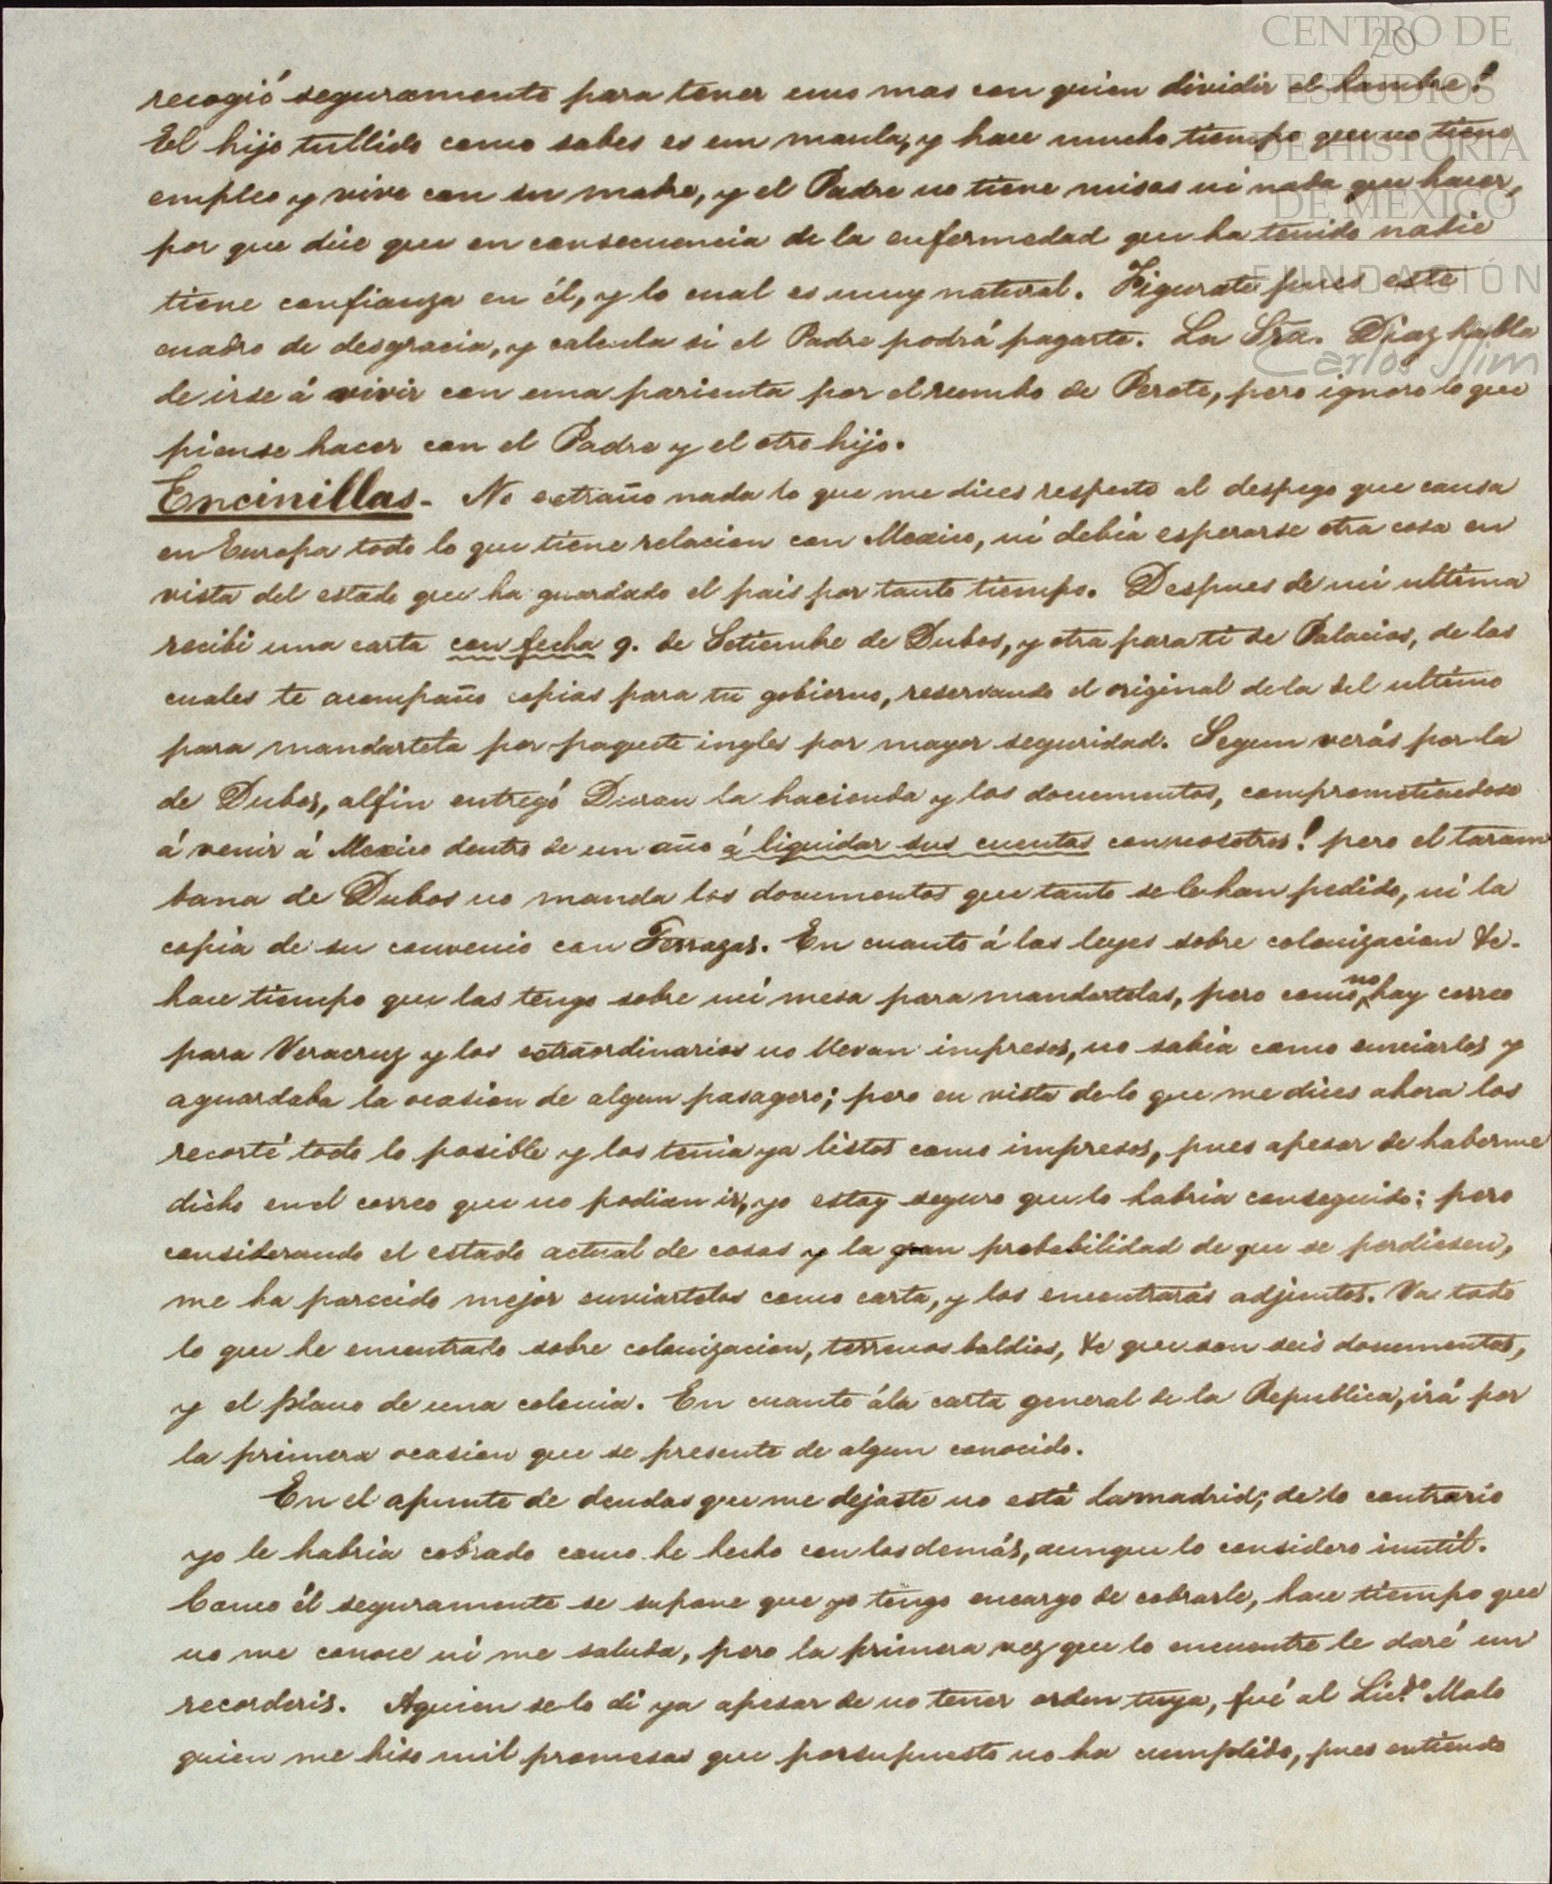 20
CENTRO DE
ESTUDIOS
DE HISTORIA
DE MÉXICO
FUNDACIÓN
Carlos Slim
recogió seguramente para tener uno mas con quien dividir el hambre!
El hijo tullido como sabes es un maula, y hace mucho tiempo que no tiene
empleo y vive con su madre, y el Padre no tiene misas ni nada que hacer,
por que dice que en consecuencia de la enfermedad que ha tenido nadie
tiene confianza en él, y lo cual es muy natural. Figurate pues este
cuadro de desgracia, y calcula si el Padre podrá pagarte. La Sra. Diaz habla
de irse á vivir con una parienta por el rumbo de Perote, pero ignoro lo que
piense hacer con el Padre y el otro hijo.
Encinillas - No extraño nada lo que me dices respecto al despego que causa
en Europa todo lo que tiene relacion con Mexico, ni debia esperarse otra cosa en
vista del estado que ha guardado el pais por tanto tiempo. Despues de mi ultima
recibi una carta con fecha 9. de Setiembre de Dubos, y otra para ti de Palacios, de las
cuales te acompaño copias para tu gobierno, reservando el original de la del ultimo
para mandartela por paquete ingles por mayor seguridad. Segun verás por la
de Dubos, alfin entregó Duran la hacienda y los documentos, comprometiendose
á venir á Mexico dentro de un año á liquidar sus cuentas con nosotros! pero el taram
bana de Dubos no manda los documentos que tanto se le han pedido, ni la
copia de su convenio con Terrazas. En cuanto á las leyes sobre colonizacion &c.
hace tiempo que las tengo sobre mi mesa para mandartelas, pero como no hay correo
para Veracruz y los extraordinarios no llevan impresos, no sabia como enviarlos y
aguardaba la ocasion de algun pasagero; pero en vista de lo que me dices ahora los
recorté todo lo posible y los tenia ya listos como impresos, pues apesar de haberme
dicho en el correo que no podian ir, yo estoy seguro que lo habria conseguido: pero
considerando el estado actual de cosas y la gran probabilidad de que se perdiesen,
me ha parecido mejor enviartelos como carta, y los encontrarás adjuntos. Va todo
lo que he encontrado sobre colonizacion, terrenos baldios, &c que son seis documentos,
y el plano de una colonia. En cuanto á la carta general de la Republica, irá por
la primera ocasion que se presente de algun conocido.
En el apunte de deudas que me dejaste no está Lamadrid; de lo contrario
yo le habria cobrado como he hecho con los demás, aunque lo considero inutil.
Como él seguramente se supone que yo tengo encargo de cobrarle, hace tiempo que
no me conoce ni me saluda, pero la primera vez que lo encuentre le daré un
recorderis. Aquien se lo di ya apesar de no tener orden tuya, fué al Licdo. Malo
quien me hizo mil promesas que porsupuesto no ha cumplido, pues entiendo